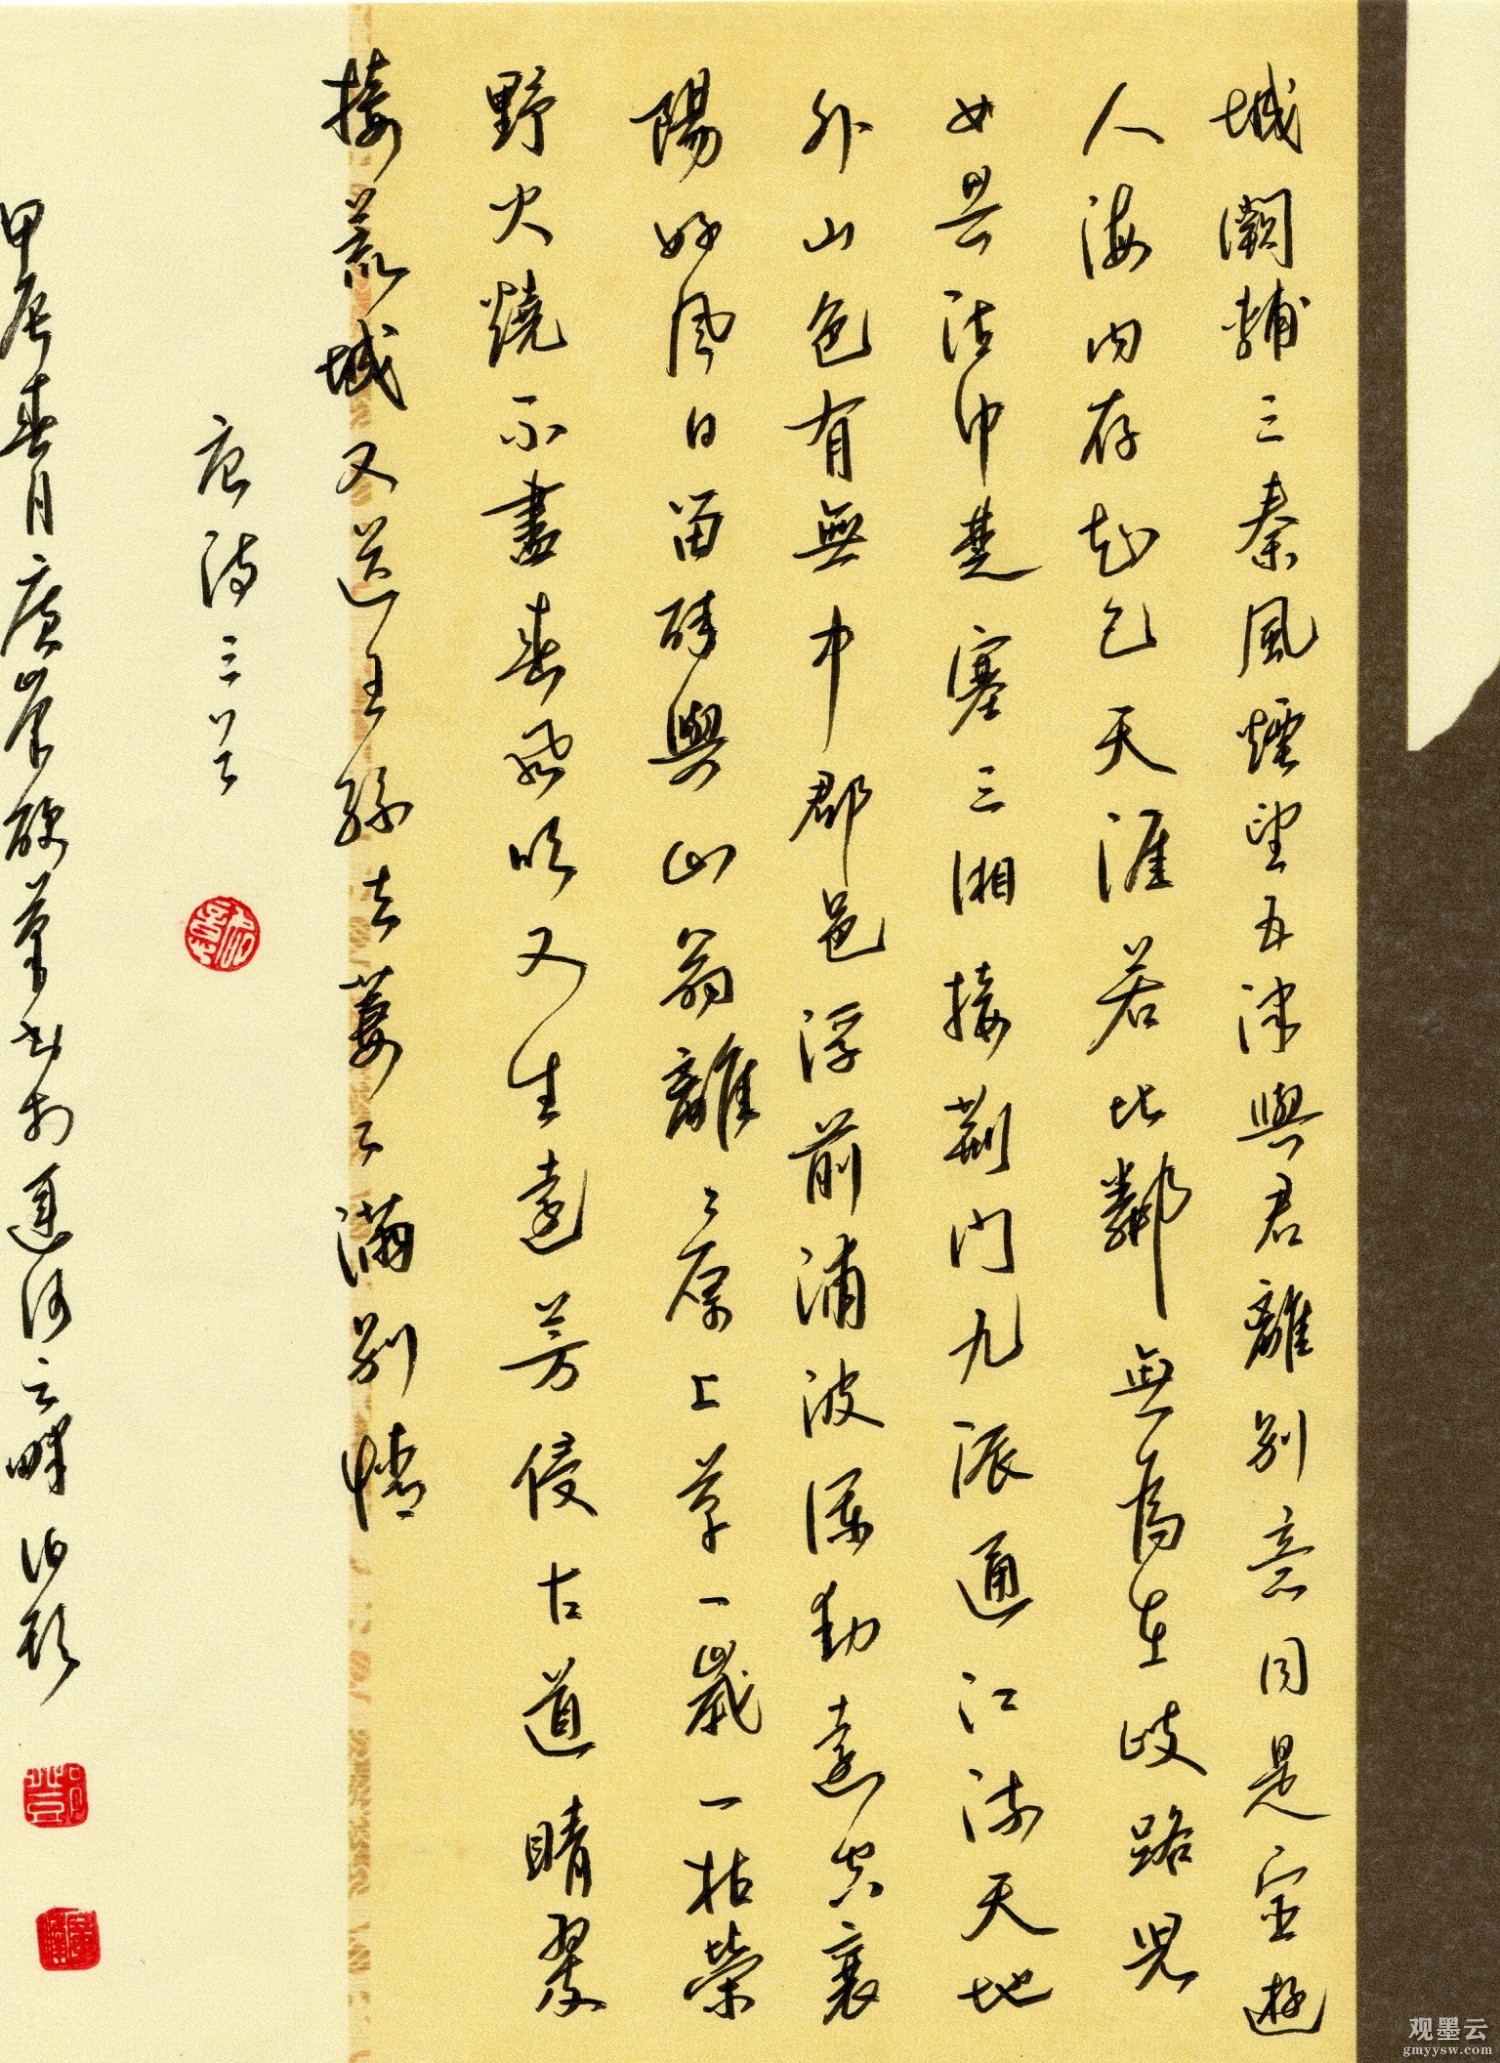 城闕輔三秦風煙望五津與君離別意同是宦遊
人海內存知己天涯若比鄰無為在歧路兒
女共沾巾楚塞三湘接荊門九派通江流天地
外山色有無中郡邑浮前浦波瀾動遠空襄
陽好風日留醉與山翁離々原上草一歲一枯榮
野火燒不盡春風吹又生遠芳侵古道晴翠
接荒城又送王孫去萋々滿別情
唐詩三首
甲辰春月廣崇硬筆書於運河之畔
观墨云
gmyysw.com